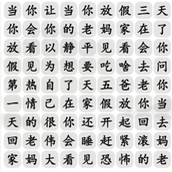 当你让当你放假三天
你会你的老妈家在了
放看以静平见看会你
假见为想要吃啥去问
第热自了天五爸老当
一情己在家假放你当
天的很你还开起回去
回老伟会睡赶紧滚妈
家妈大看见恐怖的老